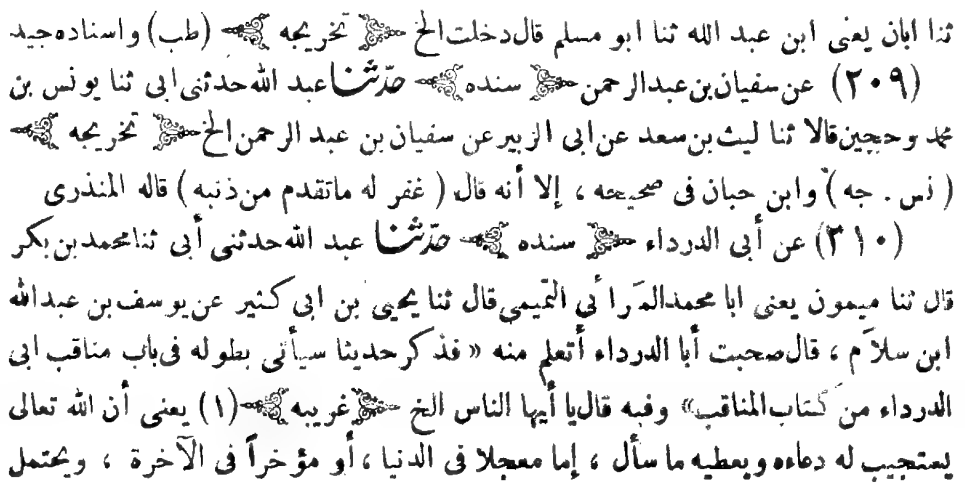 ثنا ابان يعنى ابن عبد الله ثنا ابو مسلم قال دخلت الخ تخريجه (طب) واسناده جيد
(٢٠٩) عن سفيان بن عبد الرحمن سنده حدّثنا عبد الله حدثنى ابى ثنا يونس بن
محمد وحجين قالا ثنا ليث بن سعد عن ابى الزبير عن سفيان بن عبد الرحمن الخ تخريجه
(نس . جه) وابن حبان فى صحيحه ، إلا أنه قال (غفر له ماتقدم من ذنبه) قاله المنذرى
(٣١٠) عن أبى الدرداء سنده حدّثنا عبد الله حدثنى أبى ثنا محمد بن بكر
قال ثنا ميمون يعنى ابا محمد المرائى التميمى قال ثنا يحيى بن ابى كثير عن يوسف بن عبد الله
ابن سلام ، قال صحبت أبا الدرداء أتعلم منه « فذكر حديثا سيأتى بطوله فى باب مناقب ابى
الدرداء من كتاب المناقب» وفيه قال يا أيها الناس الخ غريبه (١) يعنى أن الله تعالى
يستجيب له دعاءه ويعطيه ما سأل ، إما معجلا فى الدنيا ، أو مؤخراً فى الآخرة ، ويحتمل